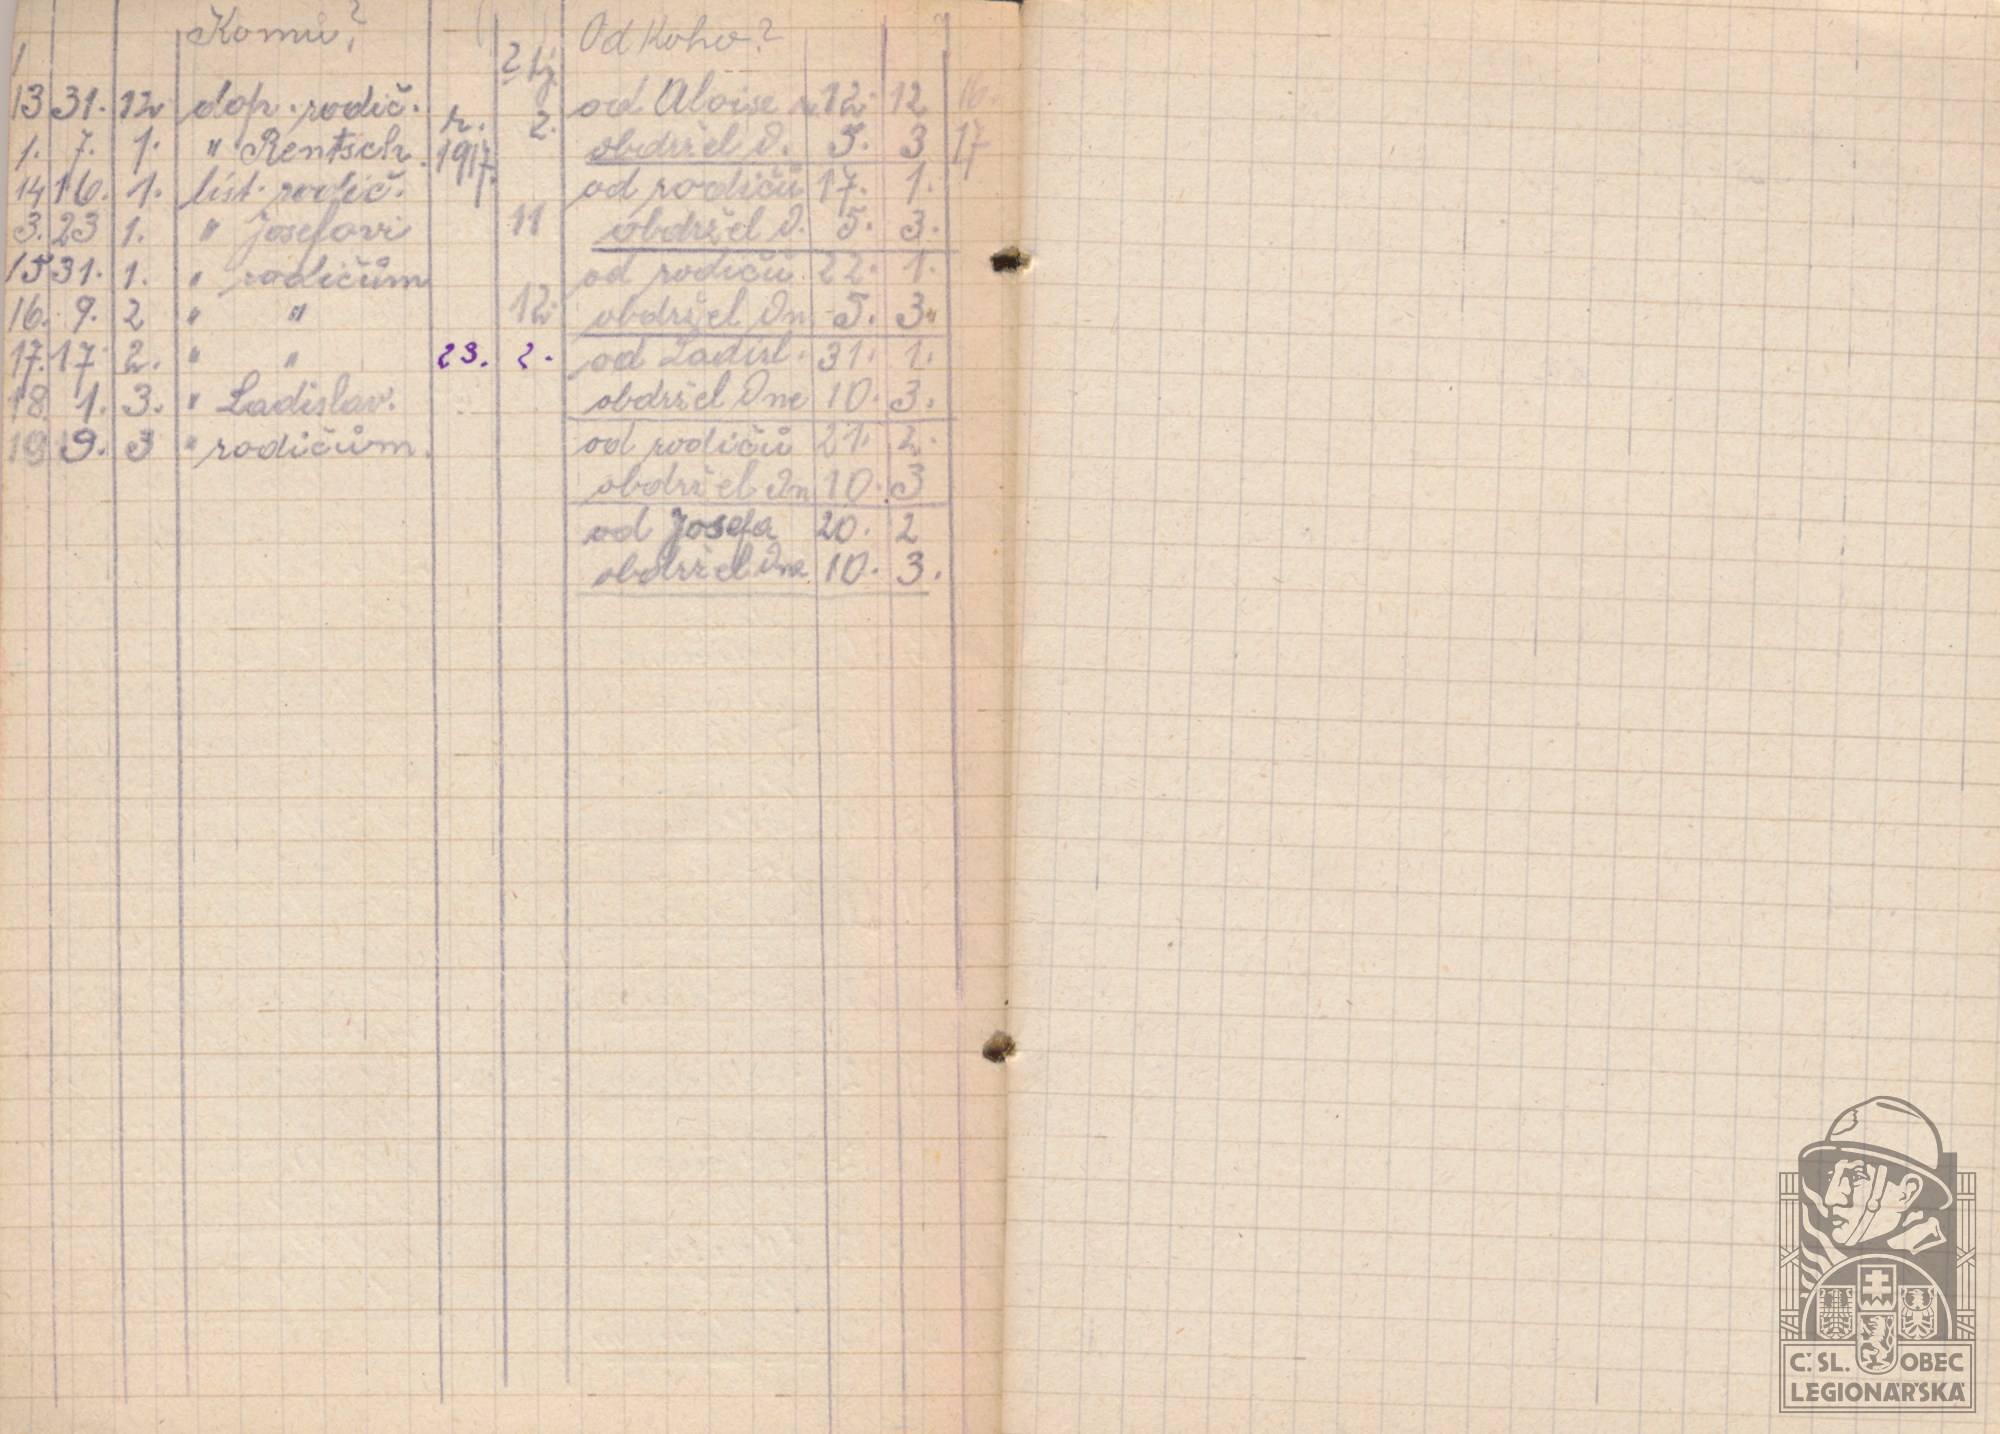 Komu? Od Koho?
13 31. 12 dop. rodič. 2. od Aloise 12. 12 16.
1. 7. 1. " Rentsch. r. 1917. obdržel d. 5. 3 17
14 16. 1. list. rodič. od rodičů 17. 1.
3. 23 1. " Josefovi 11 obdržel d. 5. 3.
15 31. 1. " rodičům od rodičů 22. 1.
16. 9. 2 " " 12. obdržel dn 5. 3.
17. 17 2. " " 23. 2. od Ladisl. 31. 1.
18. 1. 3. " Ladislav. obdržel dne 10. 3.
19 9. 3 " rodičům. od rodičů 21. 2.
obdržel dn 10. 3
od Josefa 20. 2
obdržel dne 10. 3.
Č. SL. OBEC
LEGIONÁŘSKÁ